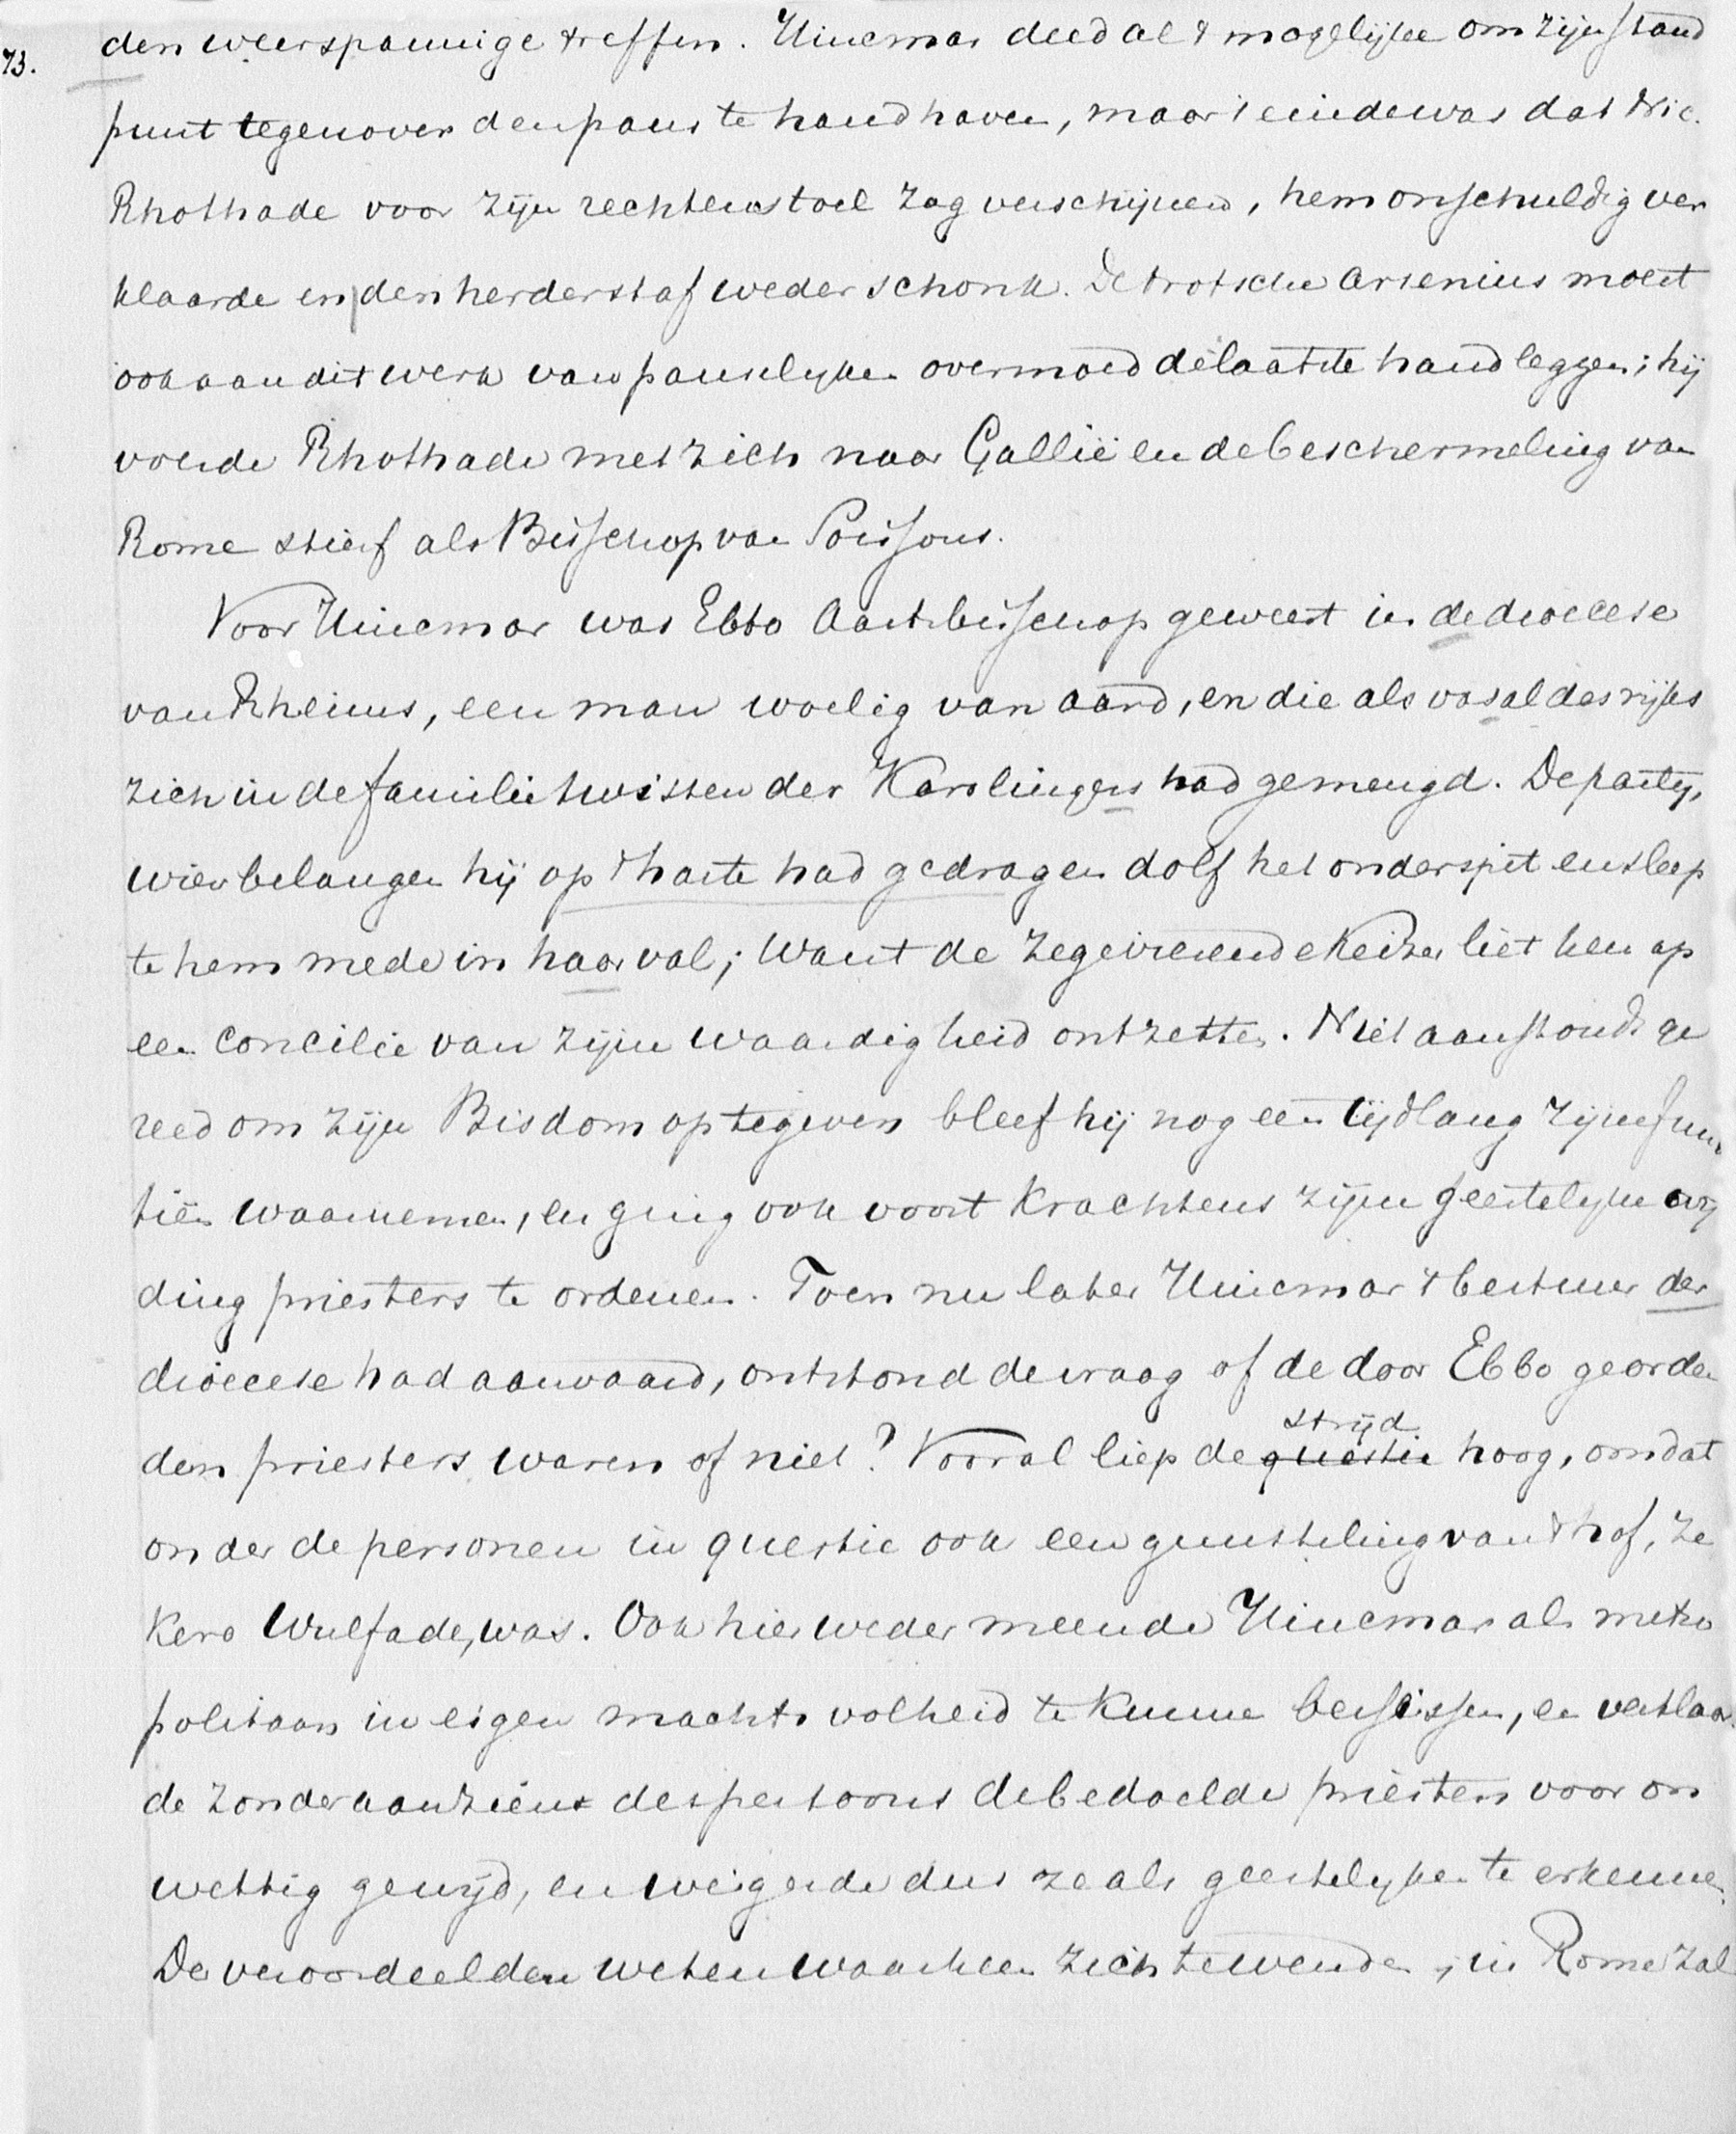 73. den weerspannige treffen. Hincmar deed al 't mogelijke om zijn stand
punt tegenover den paus te handhaven, maar 't einde was dat Nic.
Rhothade voor zijn rechterstoel zag verschijnen, hem onschuldig ver
klaarde en den herderstaf weder schonk. De trotsche Arsenius moest
ook aan dit werk van pauselijken overmoed de laatste hand leggen; hij
voerde Rhothade met zich naar Gallië en de beschermeling van
Rome stierf als Bisschop van Soissons.
Voor Hincmar was Ebbo Aartsbisschop geweest in de dioecese
van Rheims, een man woelig van aard, en die als vasal des rijks
zich in de familietwisten der Karolingers had gemengd. De partij,
wier belangen hij op 't harte had gedragen dolf het onderspit en sleep
te hem mede in haar val; want de zegevierende Keizer liet hem op
een concilie van zijn waardigheid ontzetten. Niet aanstonds ge
reed om zijn Bisdom op te geven bleef hij nog een tijdlang zijne func
tiën waarnemen, en ging ook voort krachtens zijn geestelijke wij
ding priesters te ordenen. Toen nu later Hincmar 't bestuur der
dioecese had aanvaard, ontstond de vraag of de door Ebbo georden
den priesters waren of niet? Vooral liep de questie strijd hoog, omdat
onder de personen in questie ook een gunsteling van 't hof, ze
kere Wulfade, was. Ook hier weder meende Hincmar als metro
politaan in eigen machtsvolheid te kunnen beslissen, en verklaar
de zonder aanziens des persoons de bedoelde priesters voor on
wettig gewijd, en weigerde dus ze als geestelijken te erkennen.
De veroordeelden weten waarheen zich te wenden, in Rome zal